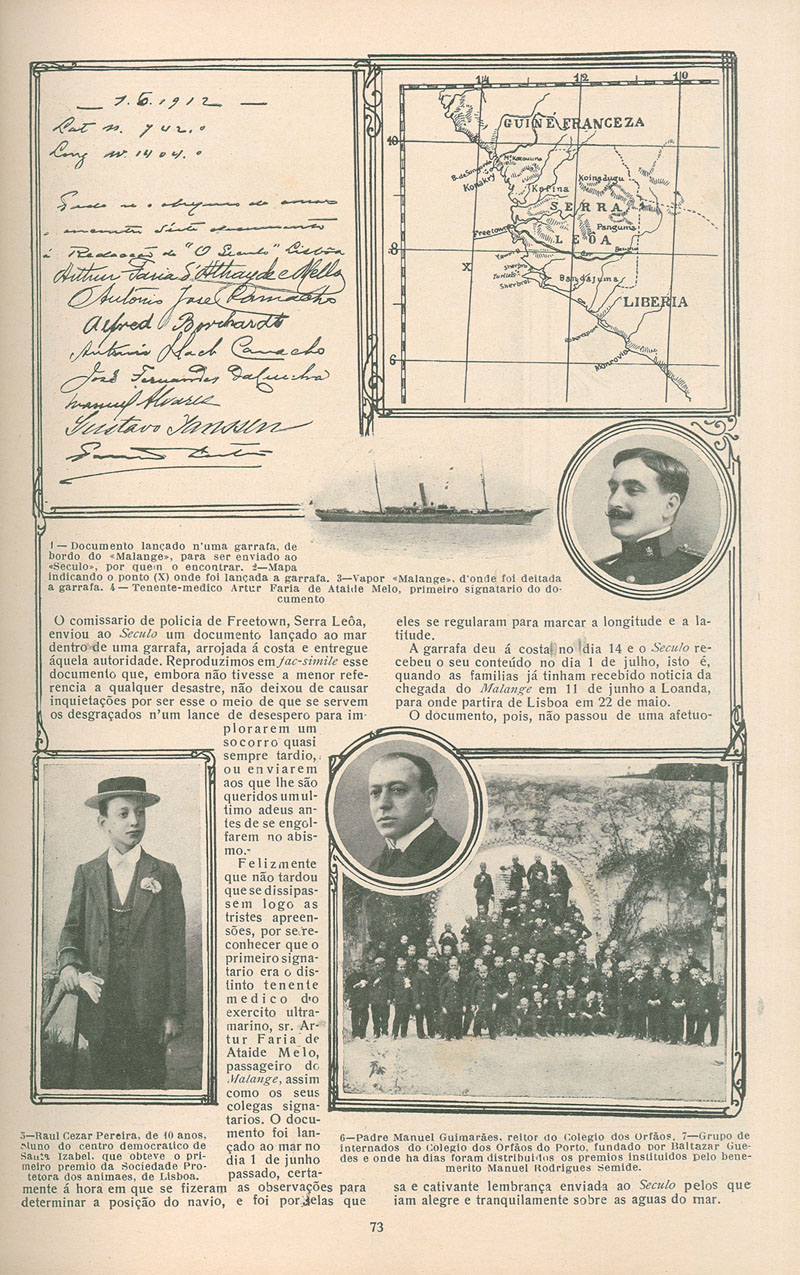 1. 6. 1912
Lat N. 7 42. 0
Long W. 14 04. 0
Pede-se o obsequio de enviar
o documento
á Redacção do "O Seculo" Lisbôa
Arthur Faria d'Athayde e Mello
Antonio José Camacho
Alfred Borchardt
Antonio Camacho
José Fernandes da Cunha
Manuel Alvares
Gustavo Janssen
14 12 10
GUINÉ FRANCEZA
10
Konakry
Kofina
Koinadugu
SERRA
Panguma
Freetown
LEÔA
8
X
Sherbro
Bandajuma
LIBERIA
6
Monrovia
1 — Documento lançado n'uma garrafa, de
bordo do «Malange», para ser enviado ao
«Seculo», por quem o encontrar. 2—Mapa
indicando o ponto (X) onde foi lançada a garrafa. 3—Vapor «Malange», d'onde foi deitada
a garrafa. 4 — Tenente-medico Artur Faria de Ataide Melo, primeiro signatario do do-
cumento
O comissario de policia de Freetown, Serra Leôa,
enviou ao Seculo um documento lançado ao mar
dentro de uma garrafa, arrojada á costa e entregue
áquela autoridade. Reproduzimos em fac-simile esse
documento que, embora não tivesse a menor refe-
rencia a qualquer desastre, não deixou de causar
inquietações por ser esse o meio de que se servem
os desgraçados n'um lance de desespero para im-
plorarem um
socorro quasi
sempre tardio,
ou enviarem
aos que lhe são
queridos um ul-
timo adeus an-
tes de se engol-
farem no abis-
mo.
Felizmente
que não tardou
que se dissipas-
sem logo as
tristes apreen-
sões, por se re-
conhecer que o
primeiro signa-
tario era o dis-
tinto tenente
medico do
exercito ultra-
marino, sr. Ar-
tur Faria de
Ataide Melo,
passageiro do
Malange, assim
como os seus
colegas signa-
tarios. O docu-
mento foi lan-
çado ao mar no
dia 1 de junho
passado, certa-
mente á hora em que se fizeram as observações para
determinar a posição do navio, e foi por elas que
eles se regularam para marcar a longitude e a la-
titude.
A garrafa deu á costa no dia 14 e o Seculo re-
cebeu o seu conteúdo no dia 1 de julho, isto é,
quando as familias já tinham recebido noticia da
chegada do Malange em 11 de junho a Loanda,
para onde partira de Lisboa em 22 de maio.
O documento, pois, não passou de uma afetuo-
sa e cativante lembrança enviada ao Seculo pelos que
iam alegre e tranquilamente sobre as aguas do mar.
5—Raul Cezar Pereira, de 10 anos,
aluno do centro democratico de
Santa Izabel, que obteve o pri-
meiro premio da Sociedade Pro-
tetora dos animaes, de Lisboa.
6—Padre Manuel Guimarães, reitor do Colegio dos Orfãos. 7—Grupo de
internados do Colegio dos Orfãos do Porto, fundado por Baltazar Gue-
des e onde ha dias foram distribuidos os premios instituidos pelo bene-
merito Manuel Rodrigues Semide.
73